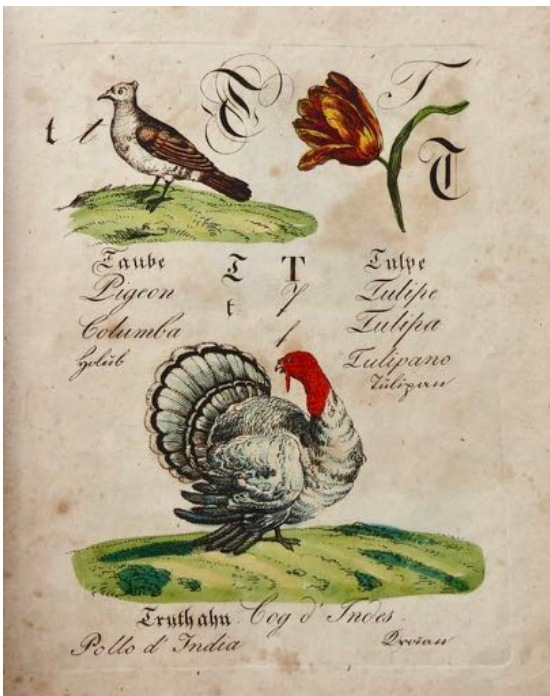 t t T T
T
Taube
Pigeon
Columba
Holub
T T
t
Tulpe
Tulipe
Tulipa
Tulipano
Tulipan
Truthahn Coq d' Indes.
Pollo d' India